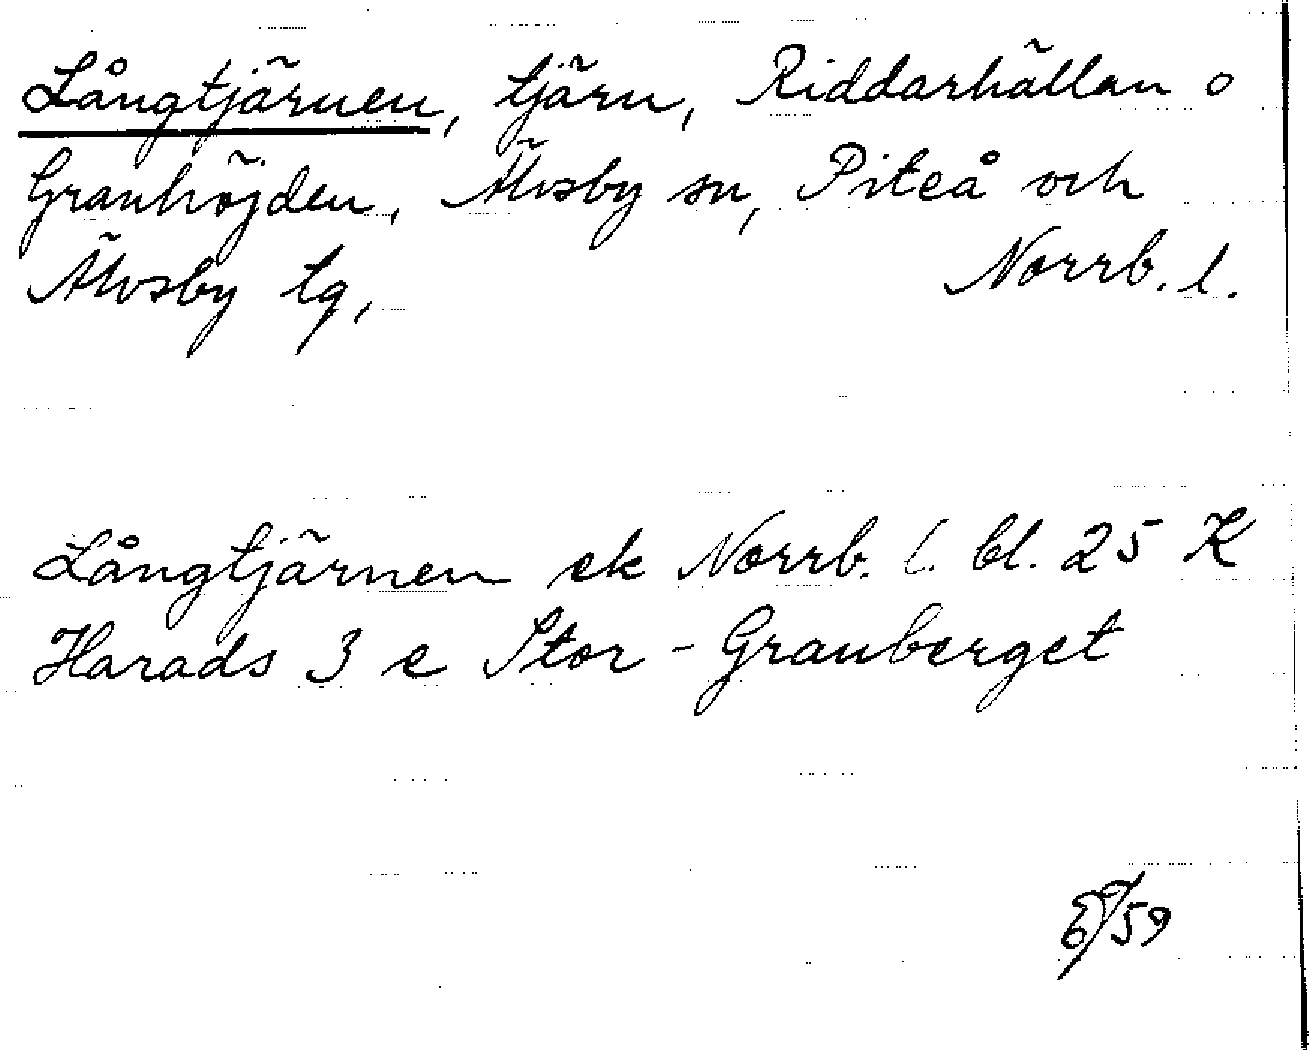 Långtjärnen, tjärn, Riddarhällan o
Granhöjden, Älvsby sn, Piteå och
Älvsby tg, Norrb. l.
Långtjärnen ek Norrb. l. bl. 25 K
Harads 3 e Stor-Granberget
/59